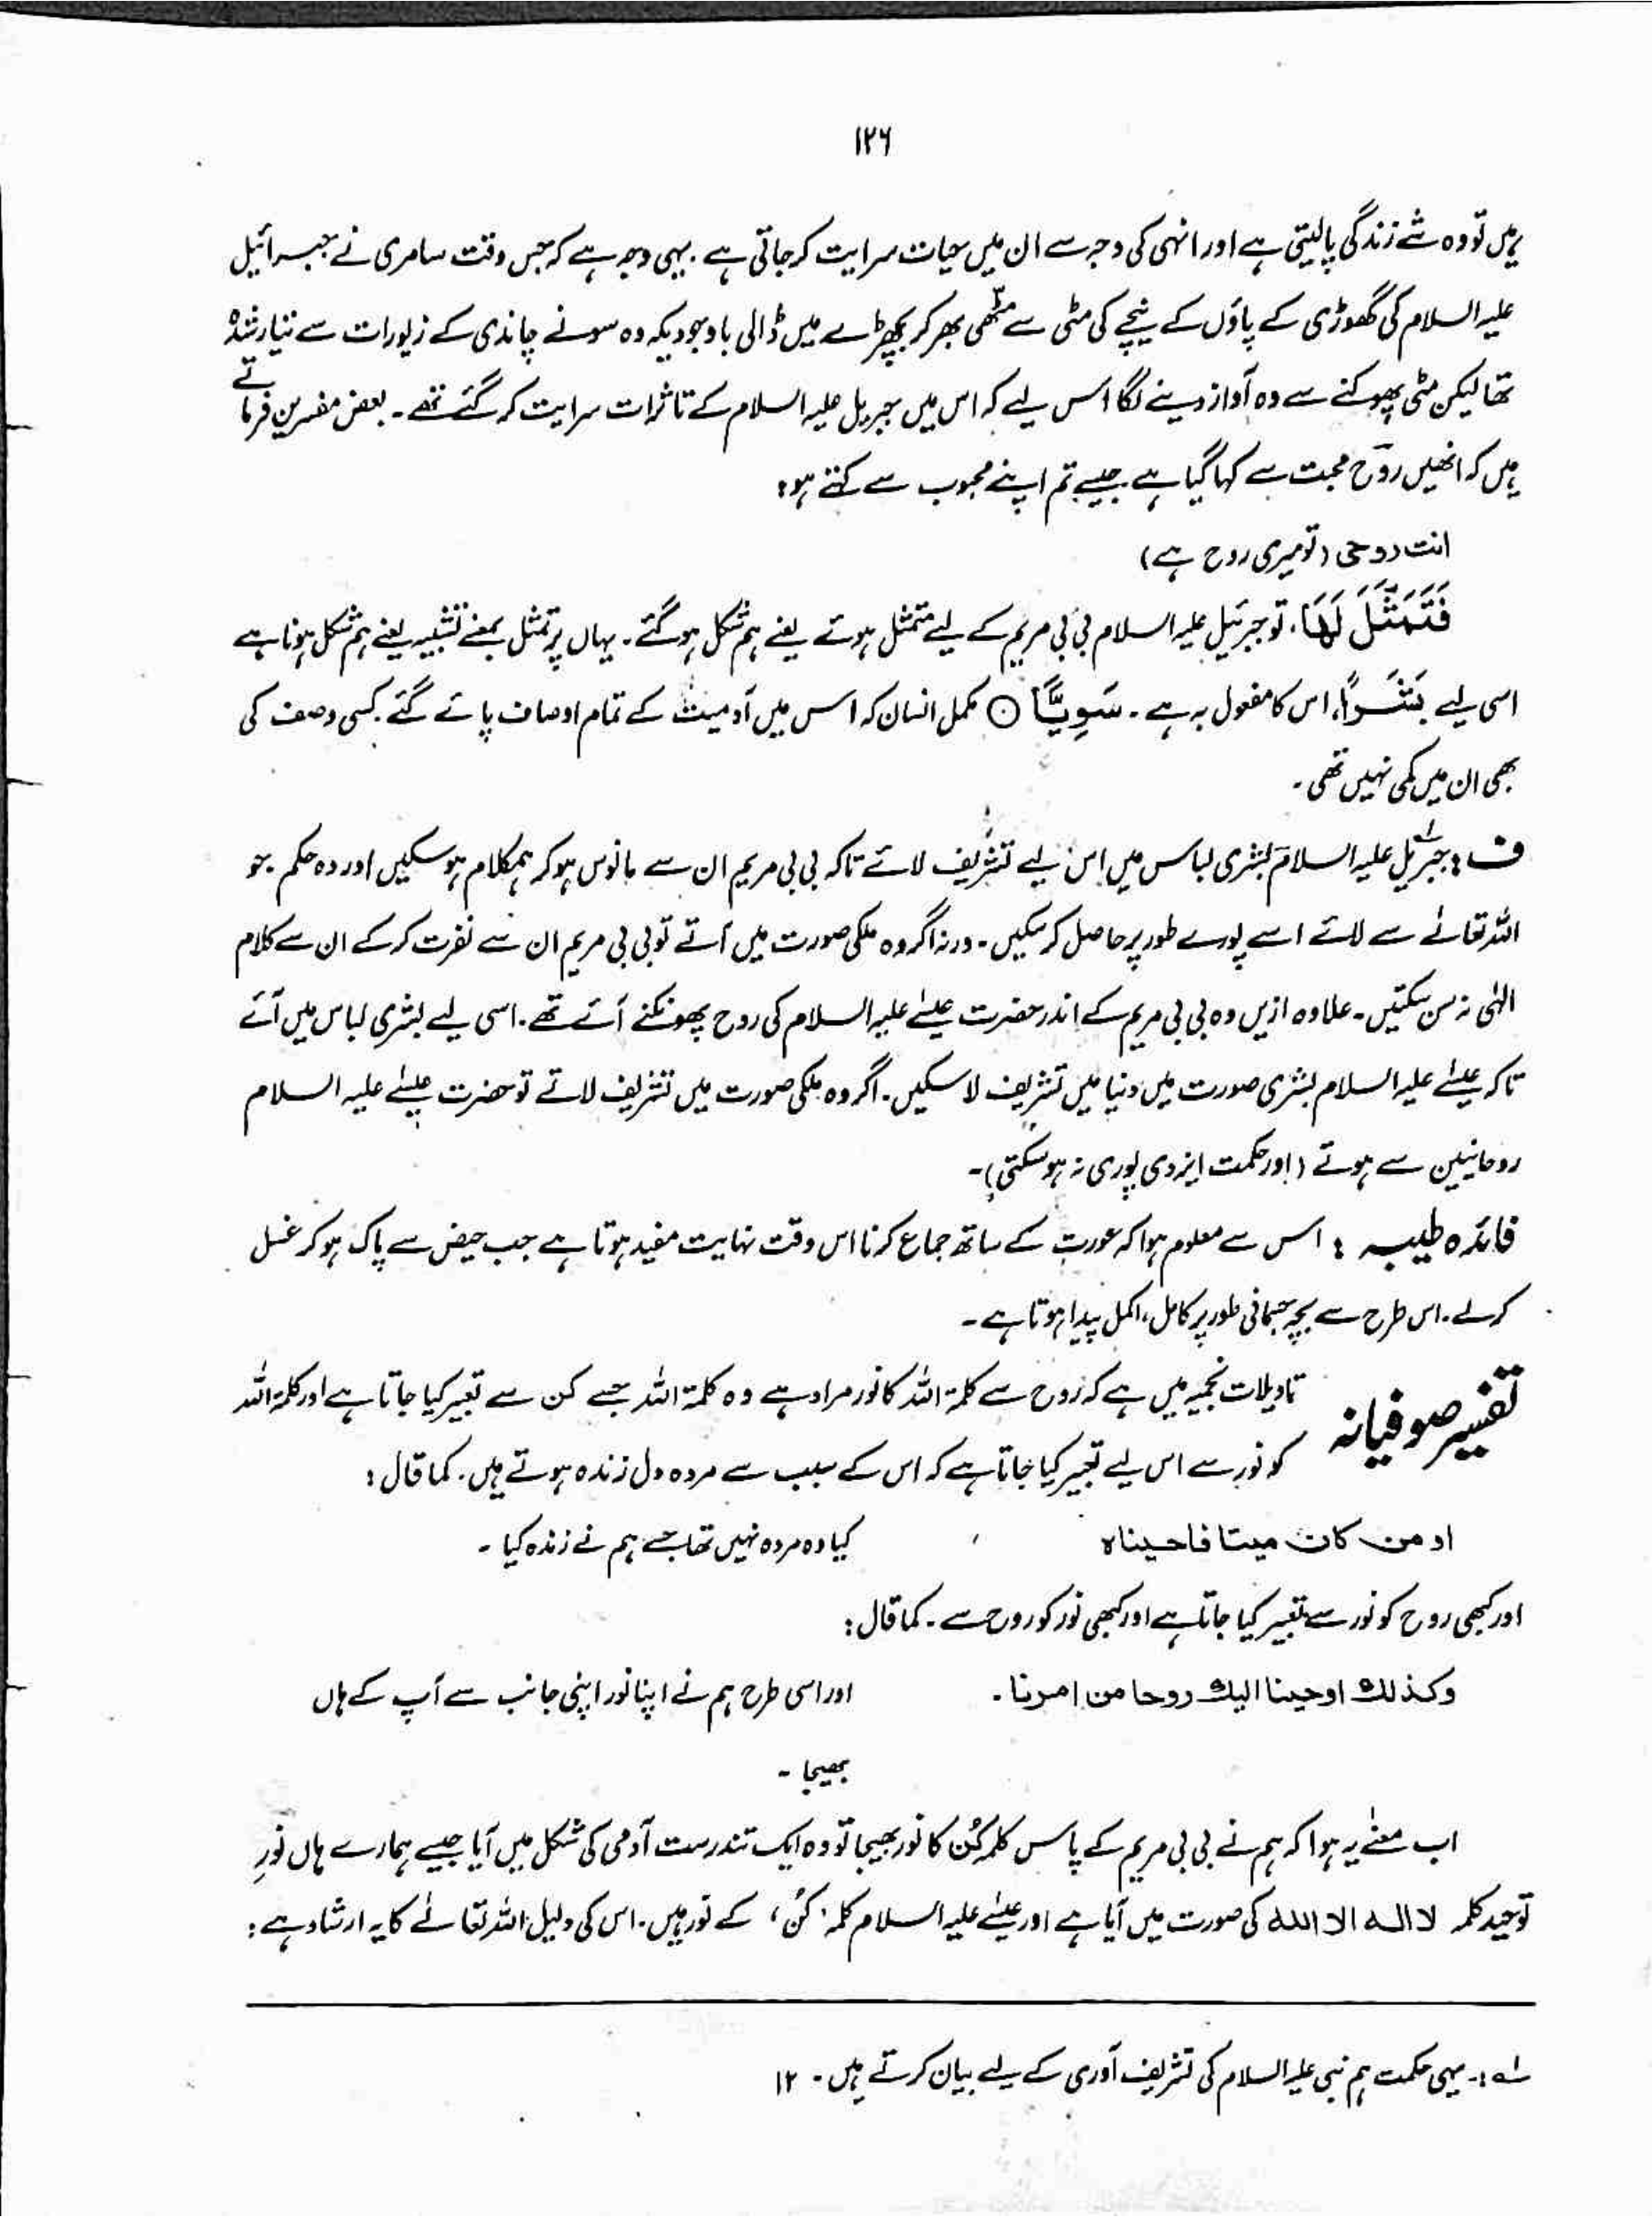 ۱۲۶
ہیں تو وہ شے زندگی پا لیتی ہے اور انہی کی وجہ سے ان میں حیات سرایت کر جاتی ہے۔ یہی وجہ ہے کہ جس وقت سامری نے جبرائیل
علیہ السلام کی گھوڑی کے پاؤں کے نیچے کی مٹی سے مٹھی بھر کر بچھڑے میں ڈالی باوجودیکہ وہ سونے چاندی کے زیورات سے تیار شدہ
تھا لیکن مٹی پھوکنے سے وہ آواز دینے لگا اس لیے کہ اس میں جبریل علیہ السلام کے تاثرات سرایت کر گئے تھے۔ بعض مفسرین فرماتے
ہیں کہ انھیں روح محبت سے کہا گیا ہے جیسے تم اپنے محبوب سے کہتے ہو:
انت روحی (تو میری روح ہے)
فَتَمَثَّلَ لَهَا، تو جبرئیل علیہ السلام بی بی مریم کے لیے متمثل ہوئے یعنے ہم شکل ہو گئے۔ یہاں پر تمثل بمعنے تشبیہ یعنے ہم شکل ہونا ہے
اسی لیے بَشَرًا، اس کا مفعول بہ ہے۔ سَوِيًّا ○ مکمل انسان کہ اس میں آدمیت کے تمام اوصاف پائے گئے کسی وصف کی
بھی ان میں کمی نہیں تھی۔
ف: جبریل علیہ السلام بشری لباس میں اس لیے تشریف لائے تاکہ بی بی مریم ان سے مانوس ہو کر ہمکلام ہو سکیں اور وہ حکم جو
اللہ تعالٰے سے لائے اسے پورے طور پر حاصل کر سکیں۔ ورنہ اگر وہ ملکی صورت میں آتے تو بی بی مریم ان سے نفرت کر کے ان سے کلام
الٰہی نہ سن سکتیں۔ علاوہ ازیں وہ بی بی مریم کے اندر حضرت عیسٰے علیہ السلام کی روح پھونکنے آئے تھے۔ اسی لیے بشری لباس میں آئے
تاکہ عیسٰے علیہ السلام بشری صورت میں دنیا میں تشریف لا سکیں۔ اگر وہ ملکی صورت میں تشریف لاتے تو حضرت عیسٰے علیہ السلام
روحانیین سے ہوتے (اور حکمت ایزدی پوری نہ ہو سکتی)۔
فائدہ طیبہ: اس سے معلوم ہوا کہ عورت کے ساتھ جماع کرنا اس وقت نہایت مفید ہوتا ہے جب حیض سے پاک ہو کر غسل
کرلے۔ اس طرح سے بچہ جسمانی طور پر کامل، اکمل پیدا ہوتا ہے۔
تفسیر صوفیانہ تاویلات نجمیہ میں ہے کہ روح سے کلمۃ اللہ کا نور مراد ہے وہ کلمۃ اللہ جسے کن سے تعبیر کیا جاتا ہے اور کلمۃ اللہ
کو نور سے اس لیے تعبیر کیا جاتا ہے کہ اس کے سبب سے مردہ دل زندہ ہوتے ہیں۔ کما قال:
او من کان میتا فاحییناہ کیا وہ مردہ نہیں تھا جسے ہم نے زندہ کیا۔
اور کبھی روح کو نور سے تعبیر کیا جاتا ہے اور کبھی نور کو روح سے۔ کما قال:
وکذلک اوحینا الیک روحا من امرنا۔ اور اسی طرح ہم نے اپنا نور اپنی جانب سے آپ کے ہاں
بھیجا۔
اب معنٰے یہ ہوا کہ ہم نے بی بی مریم کے پاس کلمہ کُن کا نور بھیجا تو وہ ایک تندرست آدمی کی شکل میں آیا جیسے ہمارے ہاں نورِ
توحید کلمہ لا الہ الا اللہ کی صورت میں آیا ہے اور عیسٰے علیہ السلام کلمہ 'کُن' کے نور ہیں۔ اس کی دلیل اللہ تعالٰے کا یہ ارشاد ہے:
لہ:۔ یہی حکمت ہم نبی علیہ السلام کی تشریف آوری کے لیے بیان کرتے ہیں۔ ۱۲